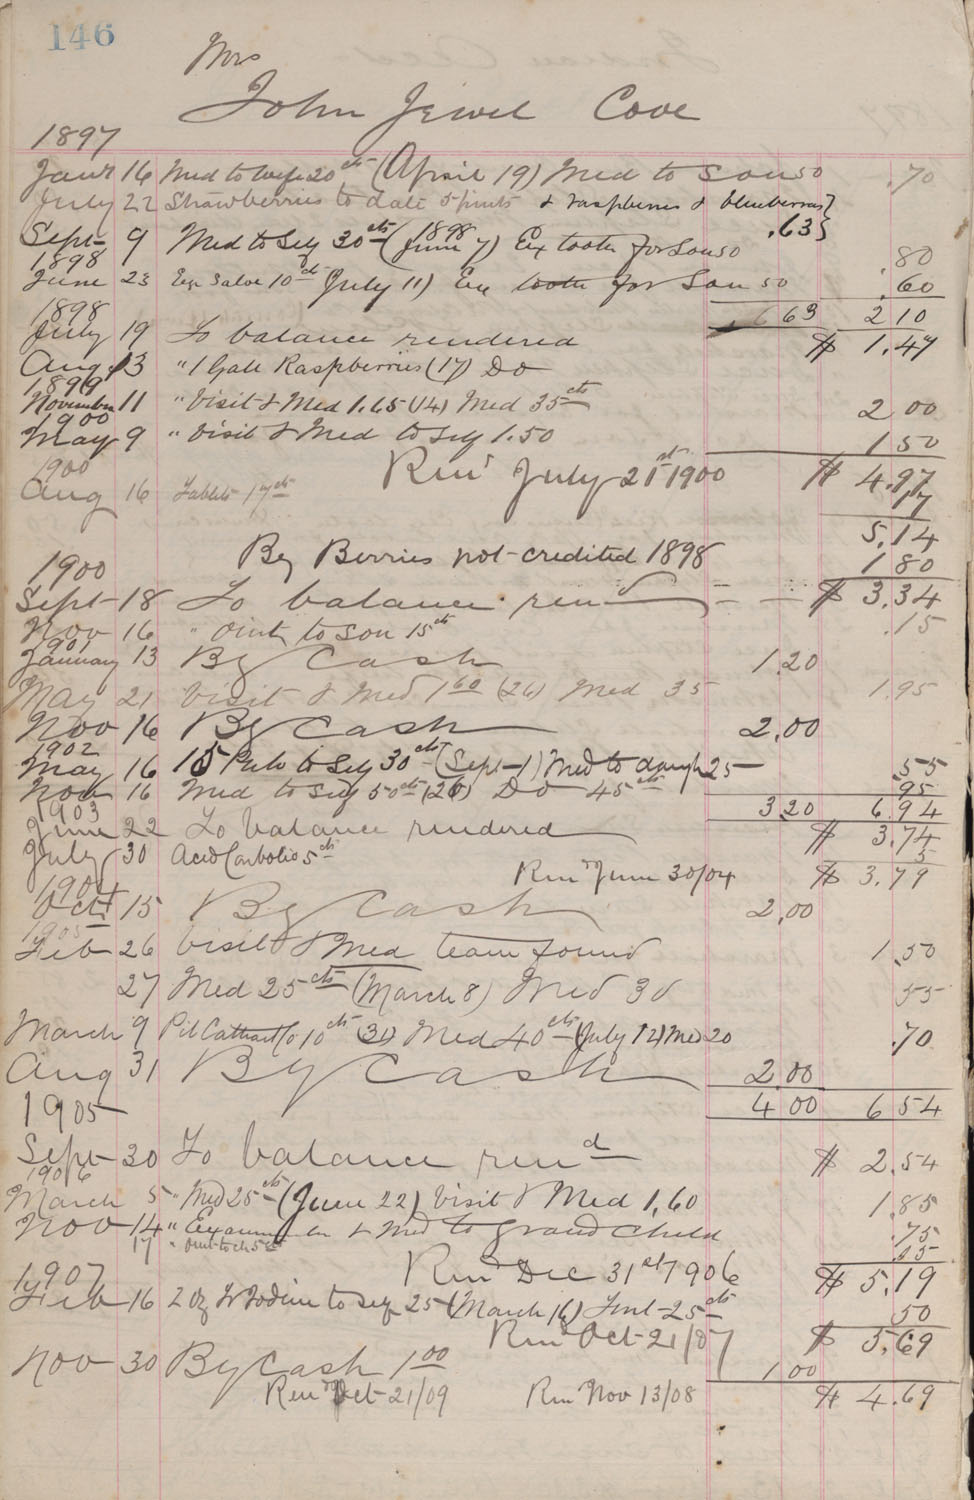 146
Mrs
John Jewel Cove
1897
Janr 16 Med to wife 20cts (April 19) Med to Son 50 .70
July 22 Strawberries to date 5 pints & raspberries & blueberries }
.63 }
Sept 9 Med to Self 30cts (1898 June 7) Ex tooth for Son 50 .80
1898
June 23 Eye Salve 10cts (July 11) Ex tooth for Son 50 .60
1898 .63 2 10
July 19 To balance rendered $ 1.47
Aug 13 " 1 Gall Raspberries (17) Do
1899
November 11 " Visit & Med 1.65 (14) Med 35cts 2 00
1900
May 9 " Visit & Med to Self 1.50 1 50
Ren July 21st 1900 $ 4.97
1900
Aug 16 Tablets 17cts .17
5.14
By Berries not credited 1898 1 80
1900
Sept 18 To balance rend $ 3.34
Nov 16 " Oint to Son 15cts .15
1901
January 13 By Cash 1.20
May 21 Visit & Med 1 60 (26) Med 35 1.95
Nov 16 By Cash 2.00
1902
May 16 15 Puls to Self 30cts (Sept 1) Med to daugh 25 .55
Nov 16 Med to Self 50cts (26) Do 45cts .95
1903 3 20 6.94
June 22 To balance rendered $ 3.74
July 30 Acid Carbolic 5cts 5
Ren June 30/04 $ 3.79
1904
Oct 15 By Cash 2.00
1905
Feb 26 Visit & Med team found 1.50
27 Med 25cts (March 8) Med 30 55
March 9 Pil Cathart Co 10cts (31) Med 40cts (July 12) Med 20 .70
Aug 31 By Cash 2 00
1905 4 00 6 54
Sept 30 To balance rend $ 2.54
1906
March 5 " Med 25cts (June 22) Visit & Med 1.60 1.85
Nov 14 " Examination & Med to Grand Child .75
17 " Oint to ch 5cts .05
Rend Dec 31st 1906 $ 5.19
1907
Feb 16 2 Oz Tr Iodine to Self 25 (March 16) Lint 25cts 50
Rend Oct 21/07 $ 5.69
Nov 30 By Cash 1 00 1 00
Rend Oct 21/09 Ren Nov 13/08 $ 4.69